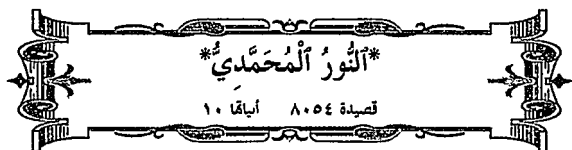 *ٱلنُّورُ ٱلْمُحَمَّدِيُّ*
قصيدة ٨٠٥٤ أبياتها ١٠